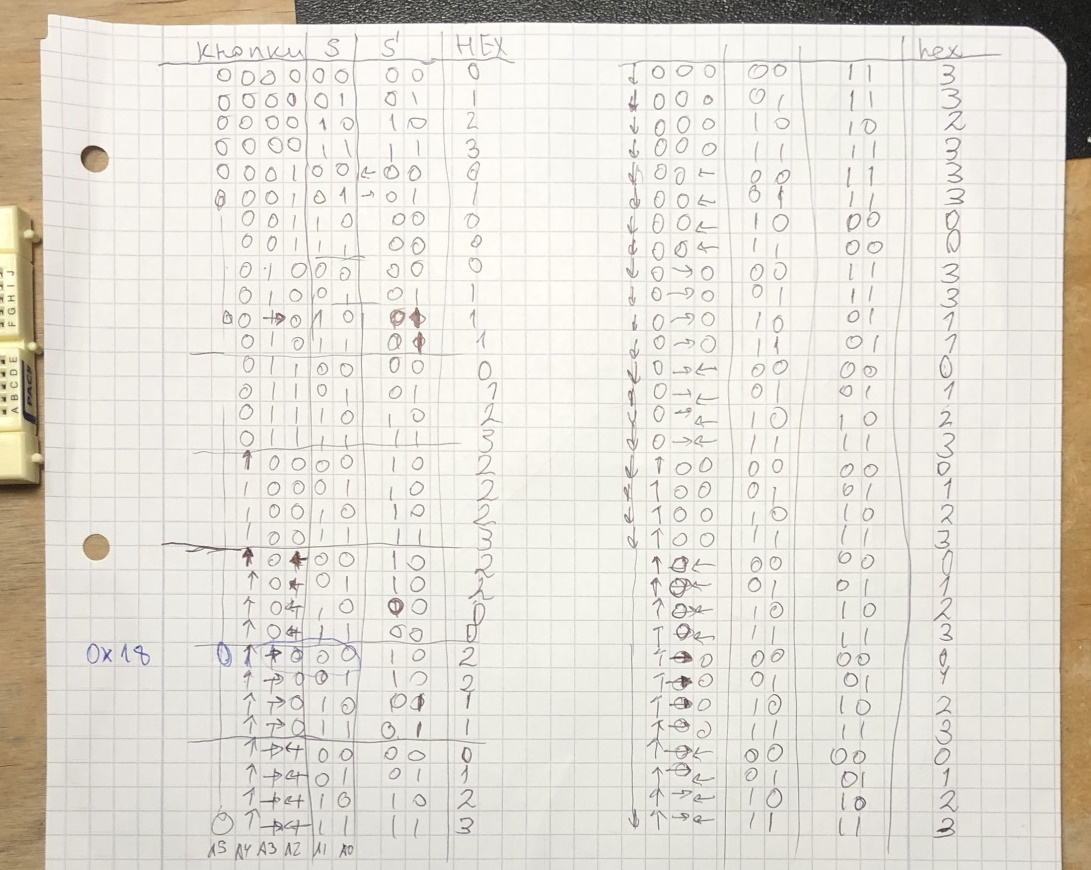 кнопки S S' HEX
0 0 0 0 0 0 0 0 0
0 0 0 0 0 1 0 1 1
0 0 0 0 1 0 1 0 2
0 0 0 0 1 1 1 1 3
0 0 0 1 0 0 ← 0 0 0
0 0 0 1 0 1 → 0 1 1
0 0 1 1 0 0 0 0
0 0 1 1 1 0 0 0
0 1 0 0 0 0 0 0
0 1 0 0 1 0 1 1
0 0 → 0 1 0 0 ↑ 1
0 1 0 1 1 0 ↑ 1
0 1 1 0 0 0 0 0
0 1 1 0 1 0 1 1
0 1 1 1 0 1 0 2
0 1 1 1 1 1 1 3
↑ 0 0 0 0 1 0 2
1 0 0 0 1 1 0 2
1 0 0 1 0 1 0 2
1 0 0 1 1 1 1 3
↑ 0 ← 0 0 1 0 2
↑ 0 ← 0 1 1 0 2
↑ 0 ← 1 0 0 0 0
↑ 0 ← 1 1 0 0 0
0x18 0 ↑ → 0 0 0 1 0 2
↑ → 0 0 1 1 0 2
↑ → 0 1 0 0 1 1
↑ → 0 1 1 0 1 1
↑ → ← 0 0 0 0 0
↑ → ← 0 1 0 1 1
↑ → ← 1 0 1 0 2
0 ↑ → ← 1 1 1 1 3
A5 A4 A3 A2 A1 A0
hex
↓ 0 0 0 0 0 1 1 3
↓ 0 0 0 0 1 1 1 3
↓ 0 0 0 1 0 1 0 2
↓ 0 0 0 1 1 1 1 3
↓ 0 0 ← 0 0 1 1 3
↓ 0 0 ← 0 1 1 1 3
↓ 0 0 ← 1 0 0 0 0
↓ 0 0 ← 1 1 0 0 0
↓ 0 → 0 0 0 1 1 3
↓ 0 → 0 0 1 1 1 3
↓ 0 → 0 1 0 0 1 1
↓ 0 → 0 1 1 0 1 1
↓ 0 → ← 0 0 0 0 0
↓ 0 → ← 0 1 0 1 1
↓ 0 → ← 1 0 1 0 2
↓ 0 → ← 1 1 1 1 3
↓ ↑ 0 0 0 0 0 0 0
↓ 1 0 0 0 1 0 1 1
↓ 1 0 0 1 0 1 0 2
↓ 1 0 0 1 1 1 1 3
↑ 0 ← 0 0 0 0 0
↑ 0 ← 0 1 0 1 1
↑ 0 ← 1 0 1 0 2
↑ 0 ← 1 1 1 1 3
↑ → 0 0 0 0 0 0
↑ → 0 0 1 0 1 1
↑ → 0 1 0 1 0 2
↑ → 0 1 1 1 1 3
↑ → ← 0 0 0 0 0
↑ → ← 0 1 0 1 1
↑ → ← 1 0 1 0 2
↓ ↑ → ← 1 1 1 1 3
F G H I J
A B C D E
PACE